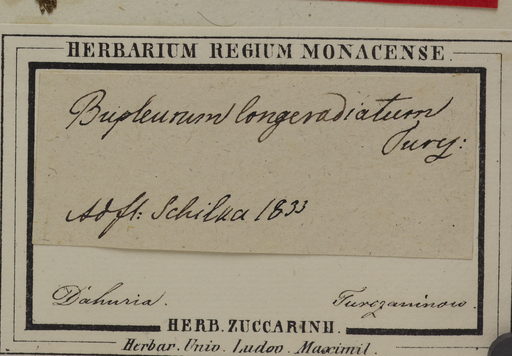 HERBARIUM REGIUM MONACENSE.
Bupleurum longeradiatum
Turcz:
Ad fl: Schilka 1833
Dahuria.
Turczaninow.
HERB. ZUCCARINII.
Herbar. Univ. Ludov. Maximil.